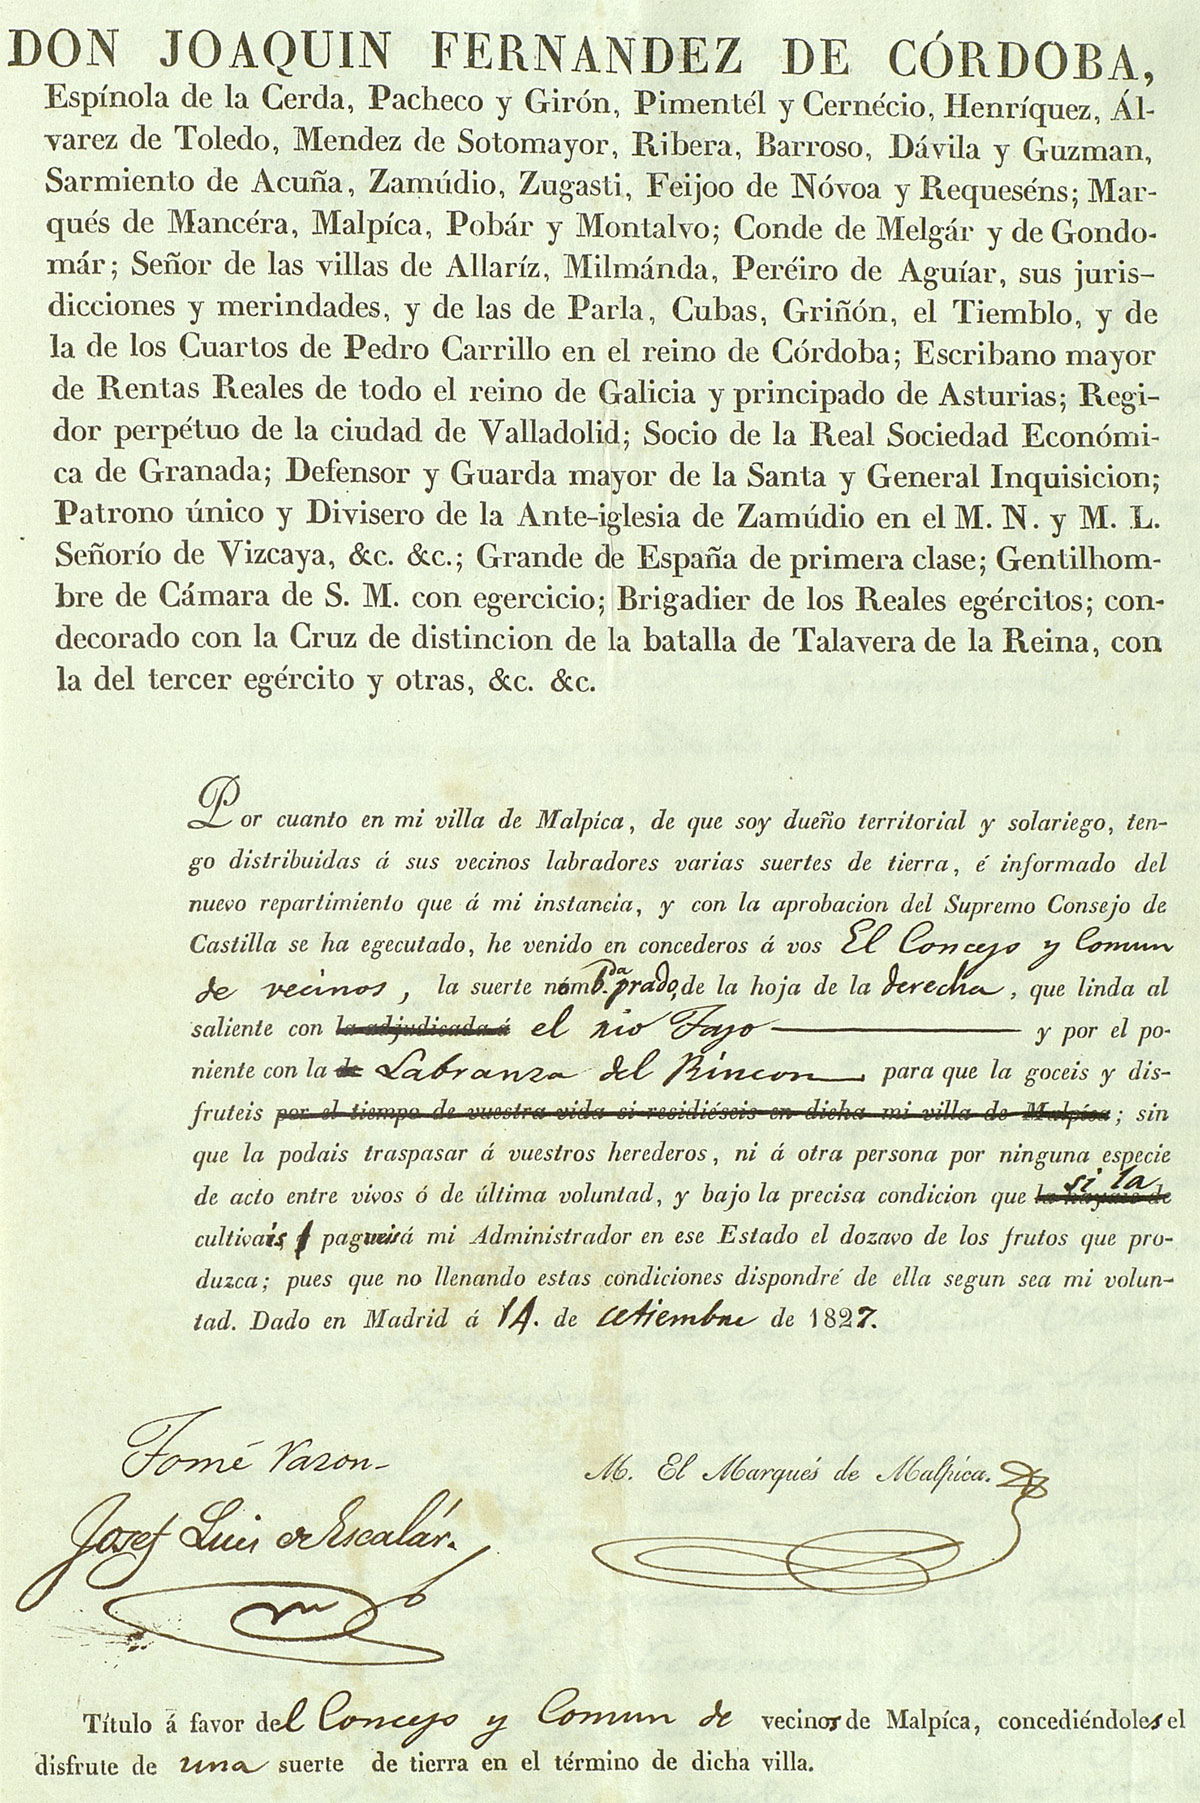 DON JOAQUIN FERNANDEZ DE CÓRDOBA,
Espínola de la Cerda, Pacheco y Girón, Pimentél y Cernécio, Henríquez, Ál-
varez de Toledo, Mendez de Sotomayor, Ribera, Barroso, Dávila y Guzman,
Sarmiento de Acuña, Zamúdio, Zugasti, Feijoo de Nóvoa y Requeséns; Mar-
qués de Mancéra, Malpíca, Pobár y Montalvo; Conde de Melgár y de Gondo-
már; Señor de las villas de Allaríz, Milmánda, Peréiro de Aguíar, sus juris-
dicciones y merindades, y de las de Parla, Cubas, Griñón, el Tiemblo, y de
la de los Cuartos de Pedro Carrillo en el reino de Córdoba; Escribano mayor
de Rentas Reales de todo el reino de Galicia y principado de Asturias; Regi-
dor perpétuo de la ciudad de Valladolid; Socio de la Real Sociedad Económi-
ca de Granada; Defensor y Guarda mayor de la Santa y General Inquisicion;
Patrono único y Divisero de la Ante-iglesia de Zamúdio en el M. N. y M. L.
Señorío de Vizcaya, &c. &c.; Grande de España de primera clase; Gentilhom-
bre de Cámara de S. M. con egercicio; Brigadier de los Reales egércitos; con-
decorado con la Cruz de distincion de la batalla de Talavera de la Reina, con
la del tercer egército y otras, &c. &c.
Por cuanto en mi villa de Malpíca, de que soy dueño territorial y solariego, ten-
go distribuidas á sus vecinos labradores varias suertes de tierra, é informado del
nuevo repartimiento que á mi instancia, y con la aprobacion del Supremo Consejo de
Castilla se ha egecutado, he venido en concederos á vos El Concejo y Comun
de vecinos, la suerte nomb.da prado, de la hoja de la derecha, que linda al
saliente con la adjudicada á el rio Tajo y por el po-
niente con la de Labranza del Rincon para que la goceis y dis-
fruteis por el tiempo de vuestra vida si residiéseis en dicha mi villa de Malpíca; sin
que la podais traspasar á vuestros herederos, ni á otra persona por ninguna especie
de acto entre vivos ó de última voluntad, y bajo la precisa condicion que la hayais de si la
cultivais, pagueis á mi Administrador en ese Estado el dozavo de los frutos que pro-
duzca; pues que no llenando estas condiciones dispondré de ella segun sea mi volun-
tad. Dado en Madrid á 14. de setiembre de 1827.
Tomé Varon
M. El Marqués de Malpíca.
Josef Luis de Escalár.
Título á favor del Concejo y Comun de vecinos de Malpíca, concediéndoles el
disfrute de una suerte de tierra en el término de dicha villa.